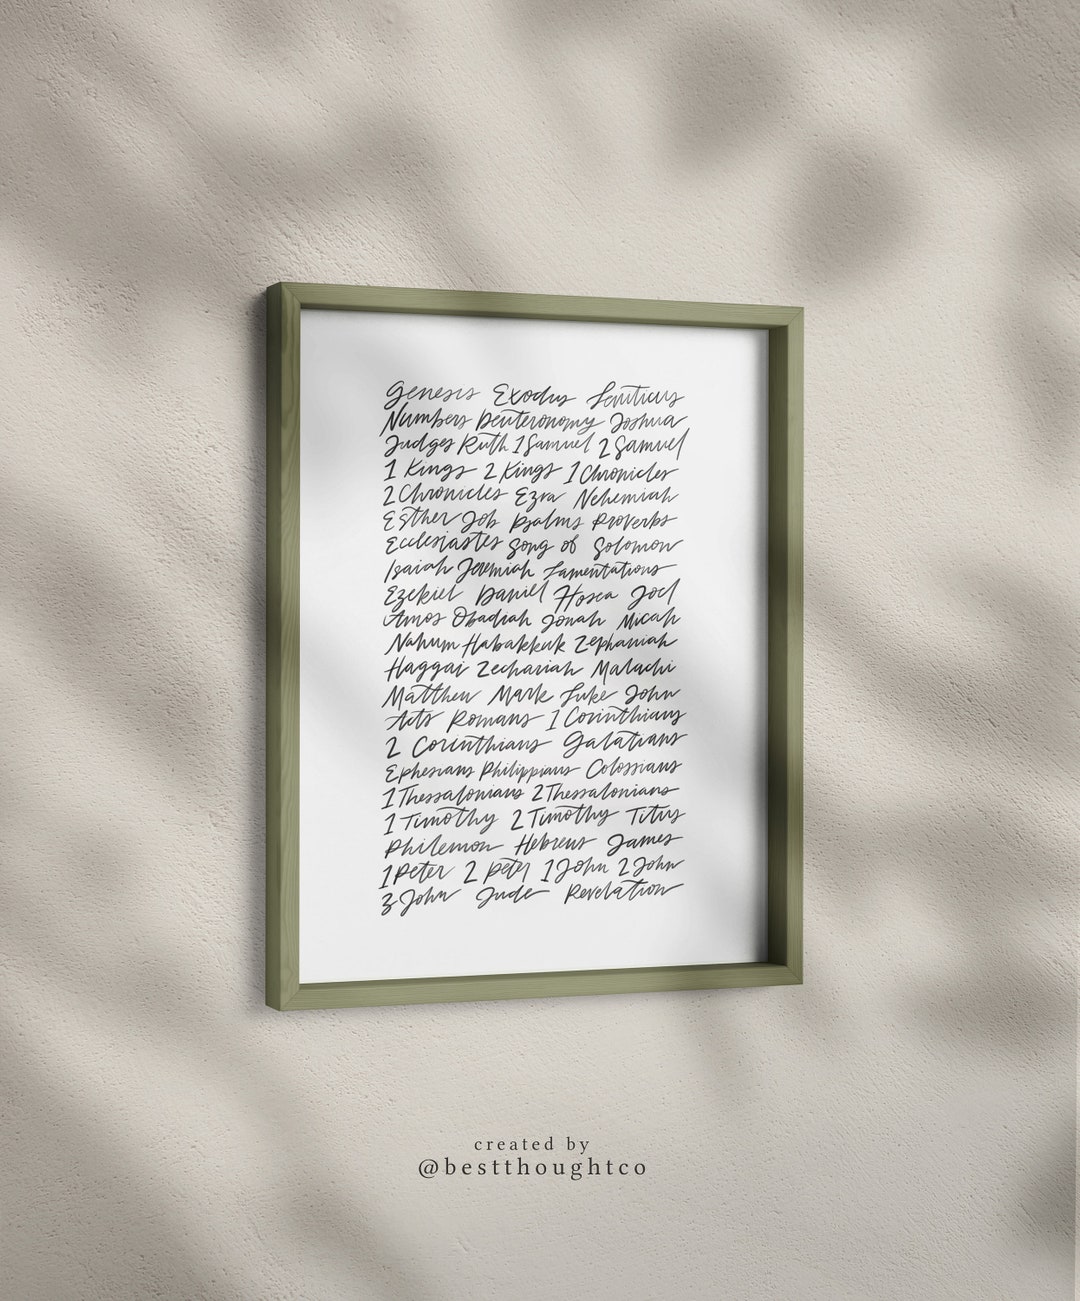 Genesis Exodus Leviticus
Numbers Deuteronomy Joshua
Judges Ruth 1 Samuel 2 Samuel
1 Kings 2 Kings 1 Chronicles
2 Chronicles Ezra Nehemiah
Esther Job Psalms Proverbs
Ecclesiastes Song of Solomon
Isaiah Jeremiah Lamentations
Ezekiel Daniel Hosea Joel
Amos Obadiah Jonah Micah
Nahum Habakkuk Zephaniah
Haggai Zechariah Malachi
Matthew Mark Luke John
Acts Romans 1 Corinthians
2 Corinthians Galatians
Ephesians Philippians Colossians
1 Thessalonians 2 Thessalonians
1 Timothy 2 Timothy Titus
Philemon Hebrews James
1 Peter 2 Peter 1 John 2 John
3 John Jude Revelation
created by
@bestthoughtco